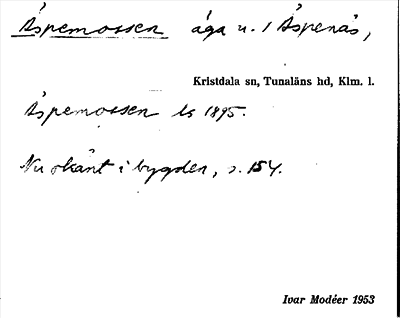 Äspemossen äga u. 1 Äspenäs,
Kristdala sn, Tunaläns hd, Klm. l.
Äspemossen ls 1895.
Nu okänt i bygden, s. 154.
Ivar Modéer 1953